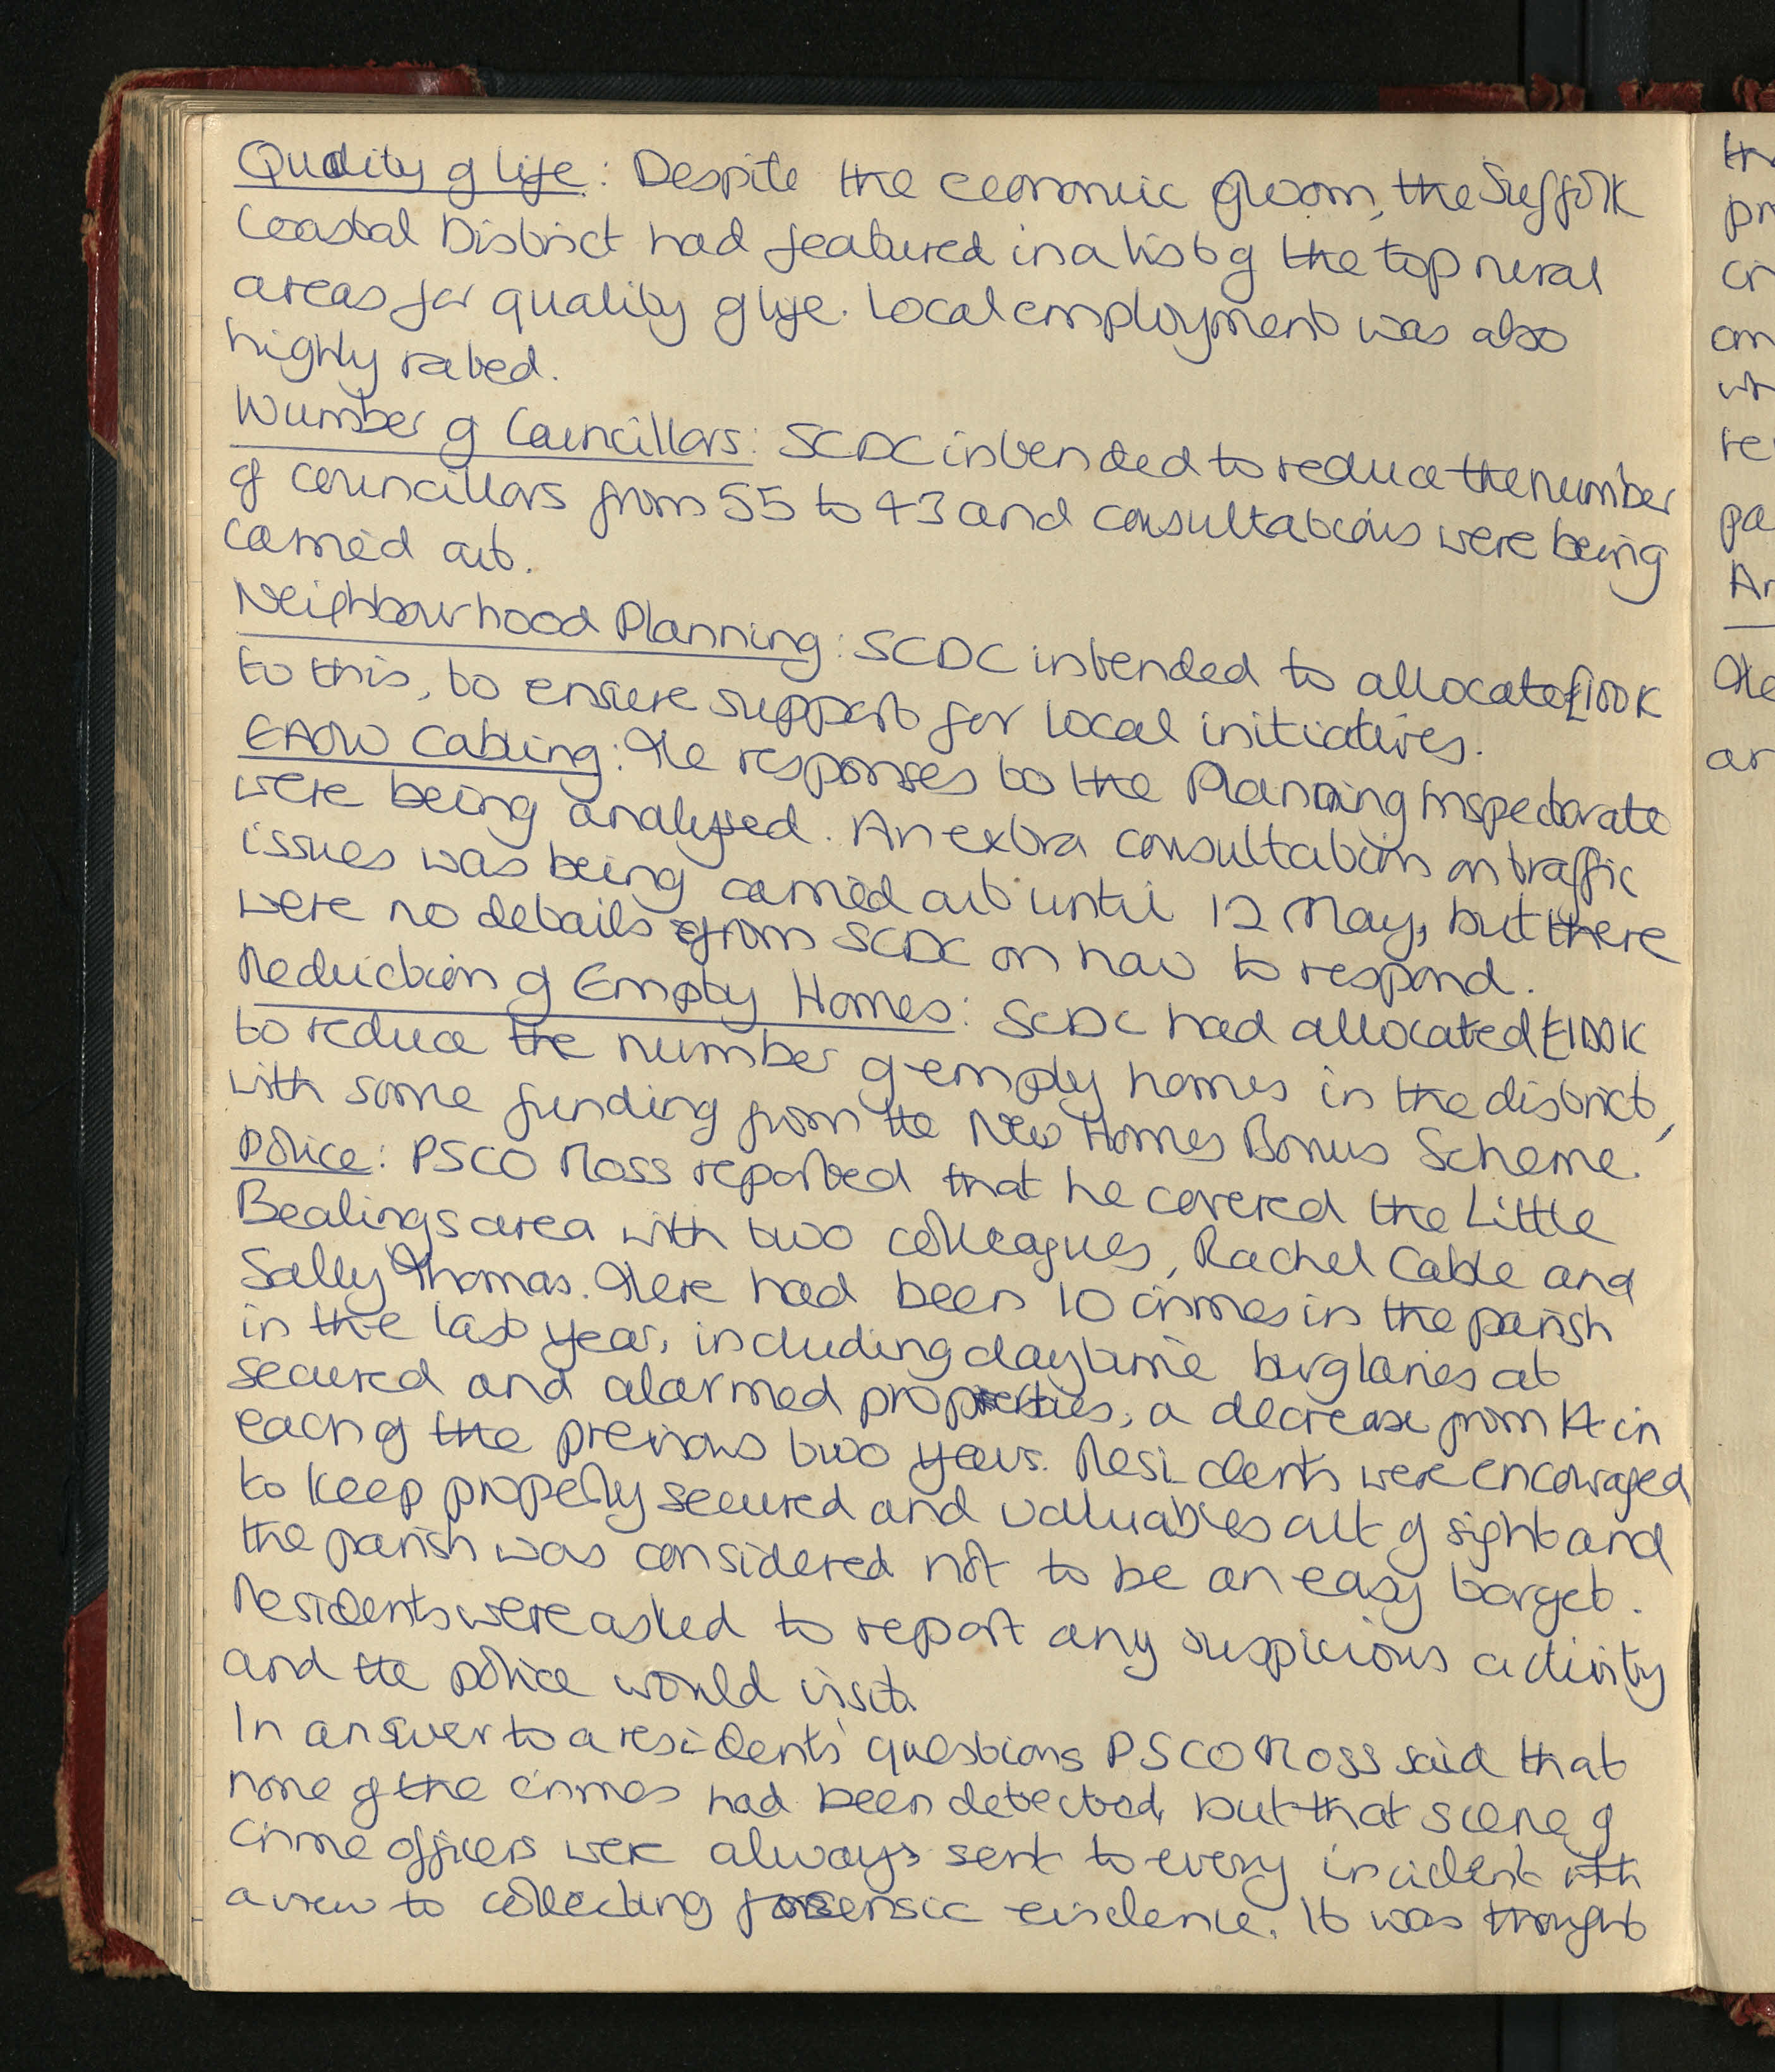 Quality of life: Despite the economic gloom, the Suffolk
Coastal District had featured in a list of the top rural
areas for quality of life. Local employment was also
highly rated.
Number of Councillors: SCDC intended to reduce the number
of councillors from 55 to 43 and consultations were being
carried out.
Neighbourhood Planning: SCDC intended to allocate £100K
to this, to ensure support for local initiatives.
EAOW Cabling: The responses to the Planning Inspectorate
were being analysed. An extra consultation on traffic
issues was being carried out until 12 May, but there
were no details from SCDC on how to respond.
Reduction of Empty Homes: SCDC had allocated £100K
to reduce the number of empty homes in the district,
with some funding from the New Homes Bonus Scheme.
Police: PSCO Ross reported that he covered the Little
Bealings area with two colleagues, Rachel Cable and
Sally Thomas. There had been 10 crimes in the parish
in the last year, including daytime burglaries at
secured and alarmed properties, a decrease from 14 in
each of the previous two years. Residents were encouraged
to keep property secured and valuables out of sight and
the parish was considered not to be an easy target.
Residents were asked to report any suspicious activity
and the police would visit.
In answer to a residents' questions PSCO Ross said that
none of the crimes had been detected, but that scene of
crime officers were always sent to every incident with
a view to collecting forensic evidence. It was thought
tr
pr
cr
on
wh
re
pa
Ar
The
ar